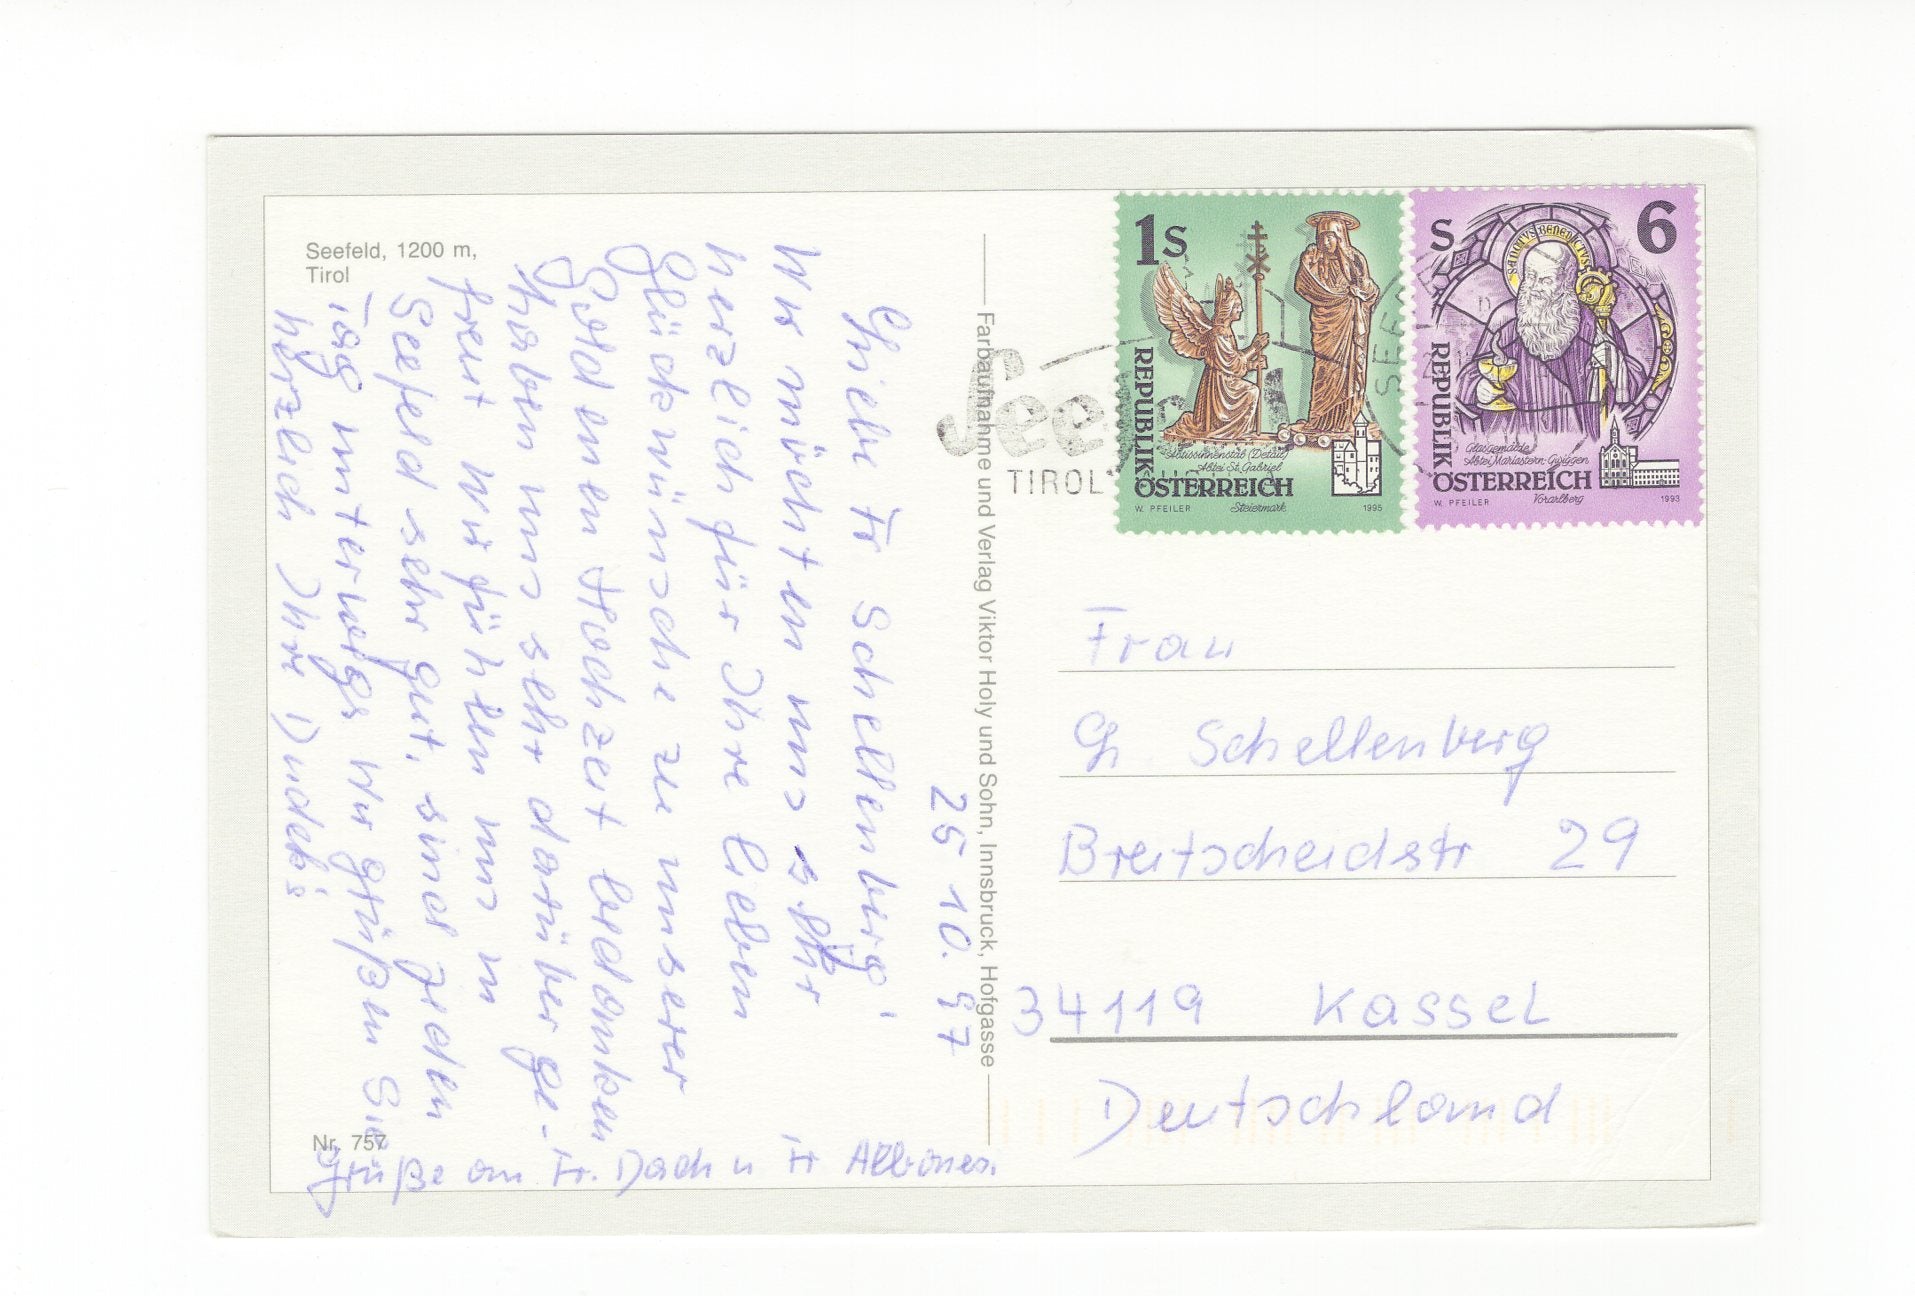 Seefeld, 1200 m,
Tirol
25 10. 97
Liebe Fr Schellenberg'
Wir möchten uns sehr
herzlich für Ihre lieben
Glückwünsche zu unserer
Goldenen Hochzeit bedanken
haben uns sehr darüber ge-
freut wir fühlen uns in
Seefeld sehr gut. sind jeden
Tag unterwegs wir grüßen Sie
herzlich Ihre Dudek's
Grüße an Fr. Dach u Fr
Nr. 757
Farbaufnahme und Verlag Viktor Holy und Sohn, Innsbruck, Hofgasse
See
TIROL
1s
REPUBLIK
ÖSTERREICH
Äbtissinnenstab (Detail)
Abtei St. Gabriel
Steiermark
W. PFEILER
1995
s 6
SANCTVS BENEDICTVS
REPUBLIK
ÖSTERREICH
Glasgemälde
Abtei Mariastern-Gwiggen
Vorarlberg
W. PFEILER
1993
Frau
Ch. Schellenberg
Breitscheidstr 29
34119 Kassel
Deutschland